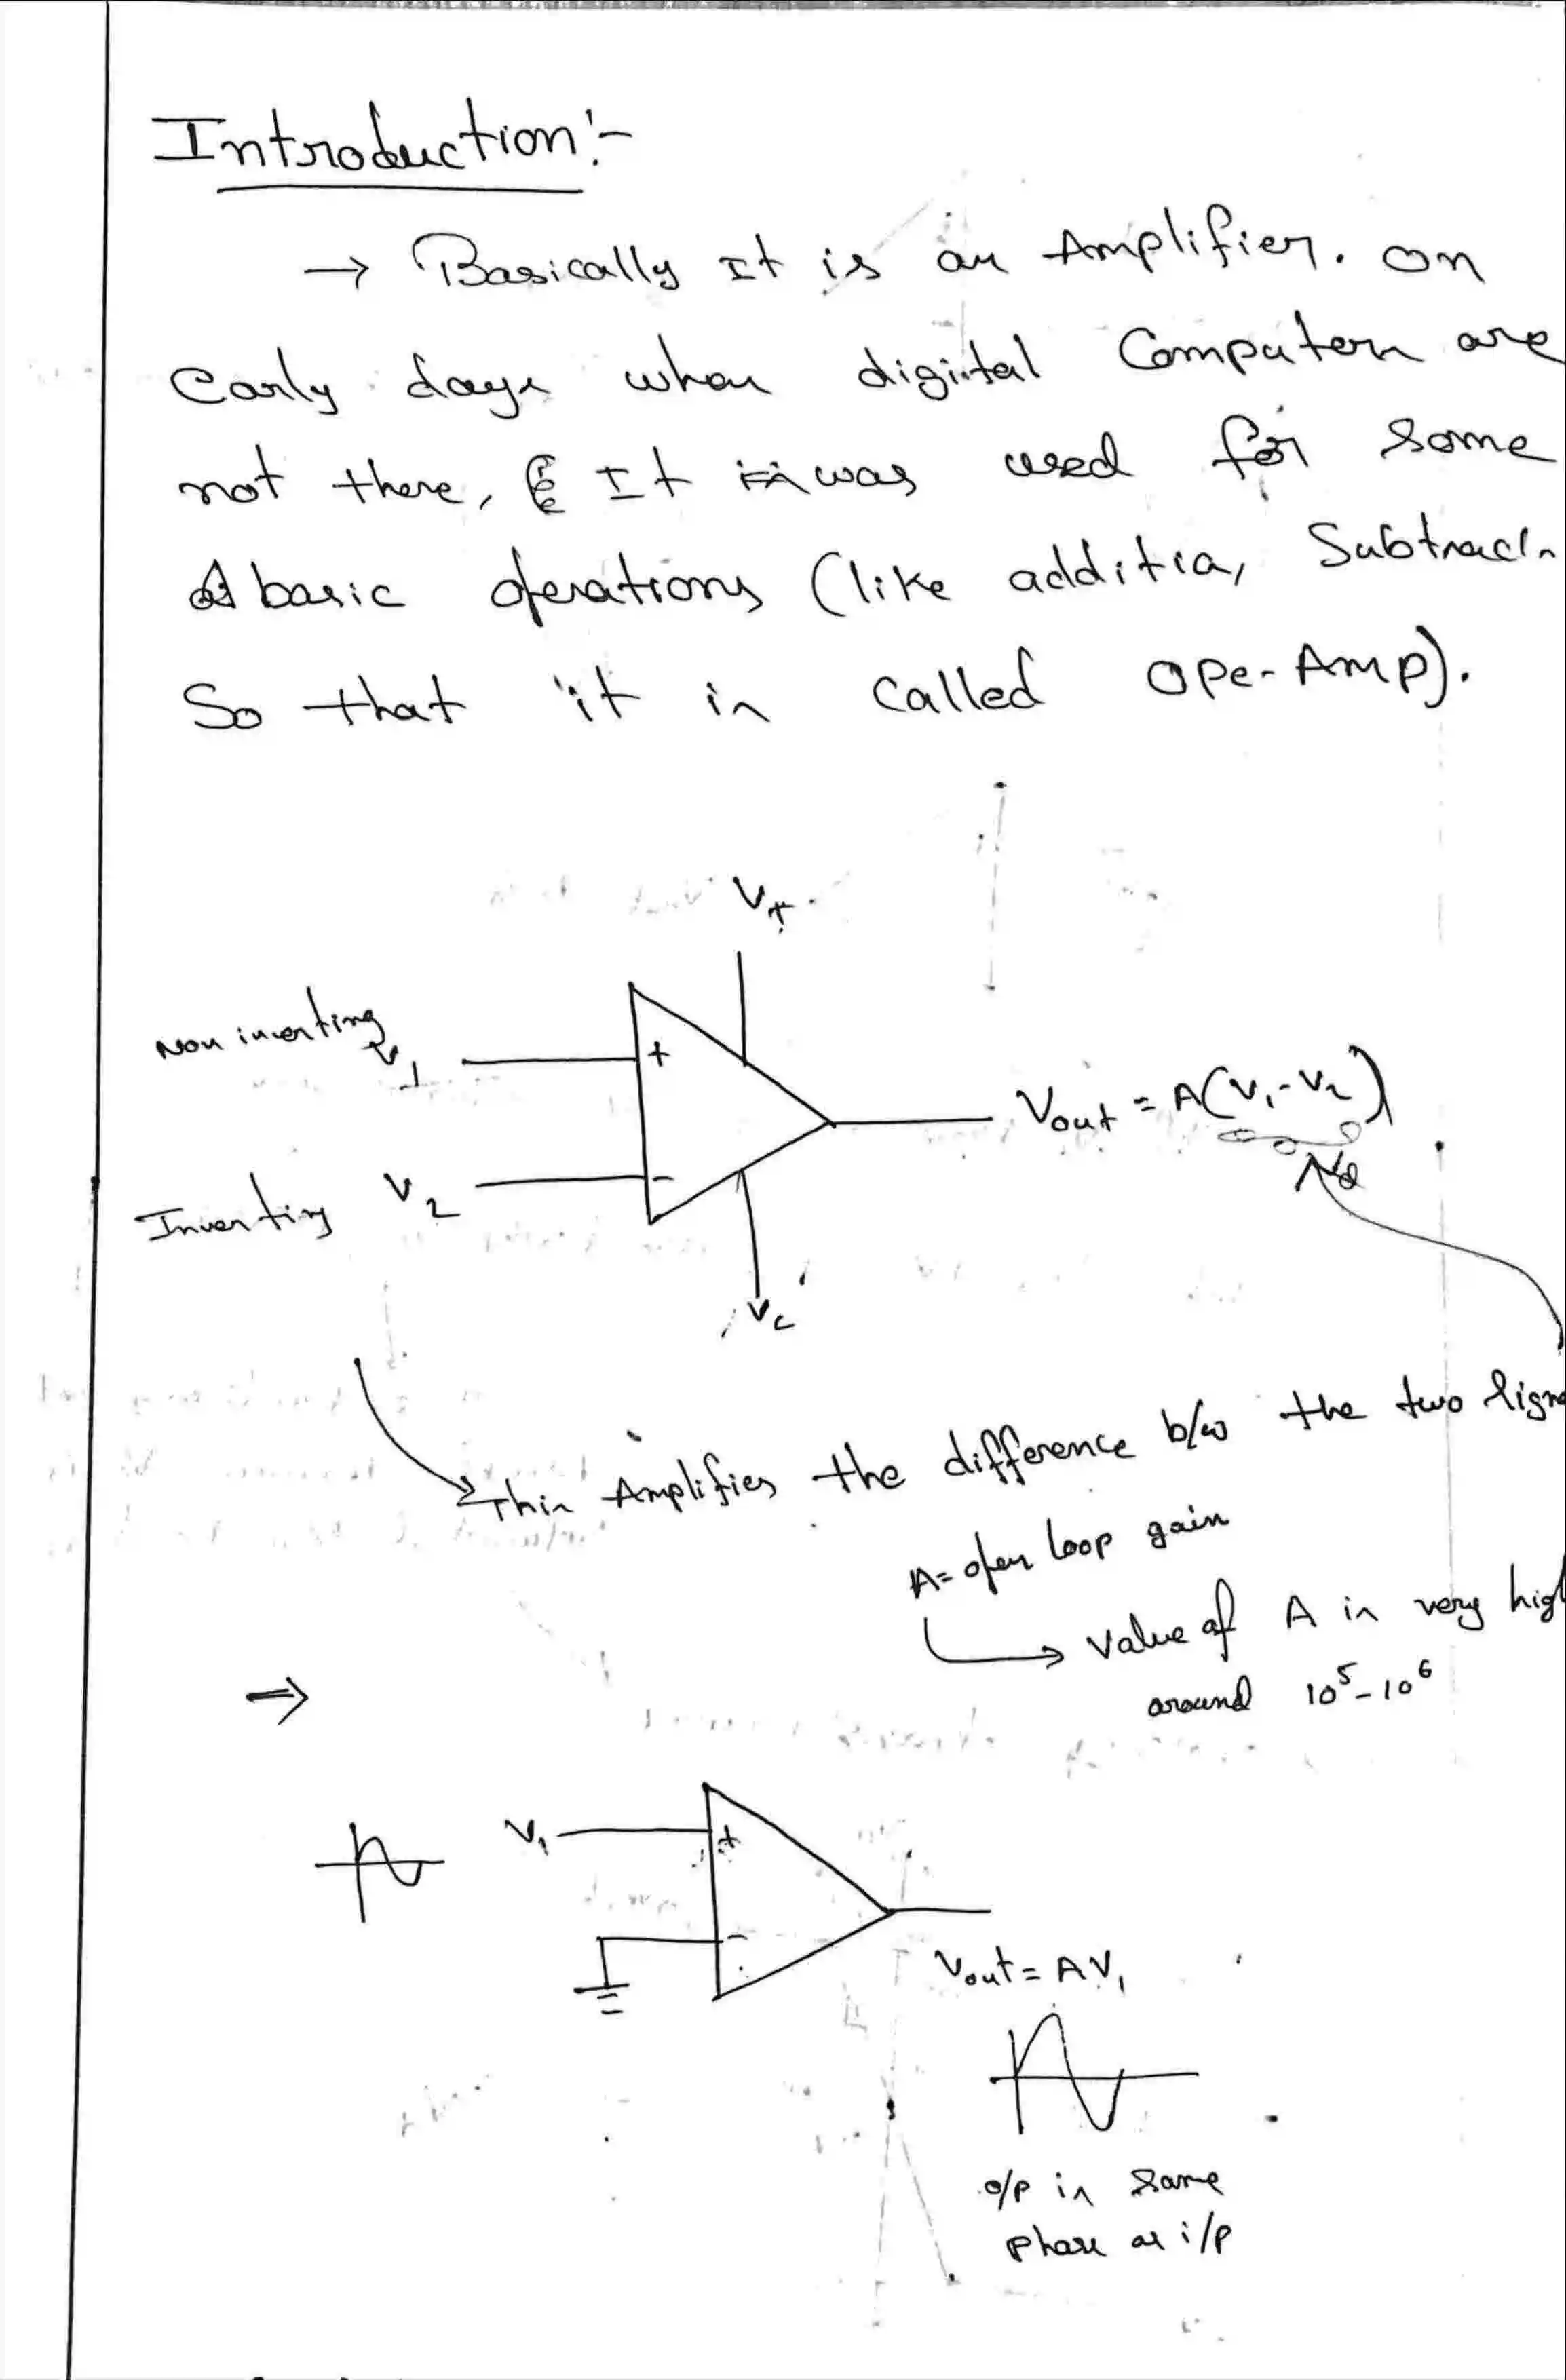 Introduction:-
→ Basically It is an Amplifier. on
early days when digital Computers are
not there, It was used for some
basic operations (like additia, Subtractn
So that it is called Ope-Amp).
V+
Non inverting V1
+
Vout = A(V1-V2)
Vd
Inverting V2
-
Vc
This Amplifies the difference b/w the two Signa
A= open loop gain
→ value of A is very high
around 10^5-10^6
⇒
V1
+
-
Vout = AV1
o/p in same
phase as i/p